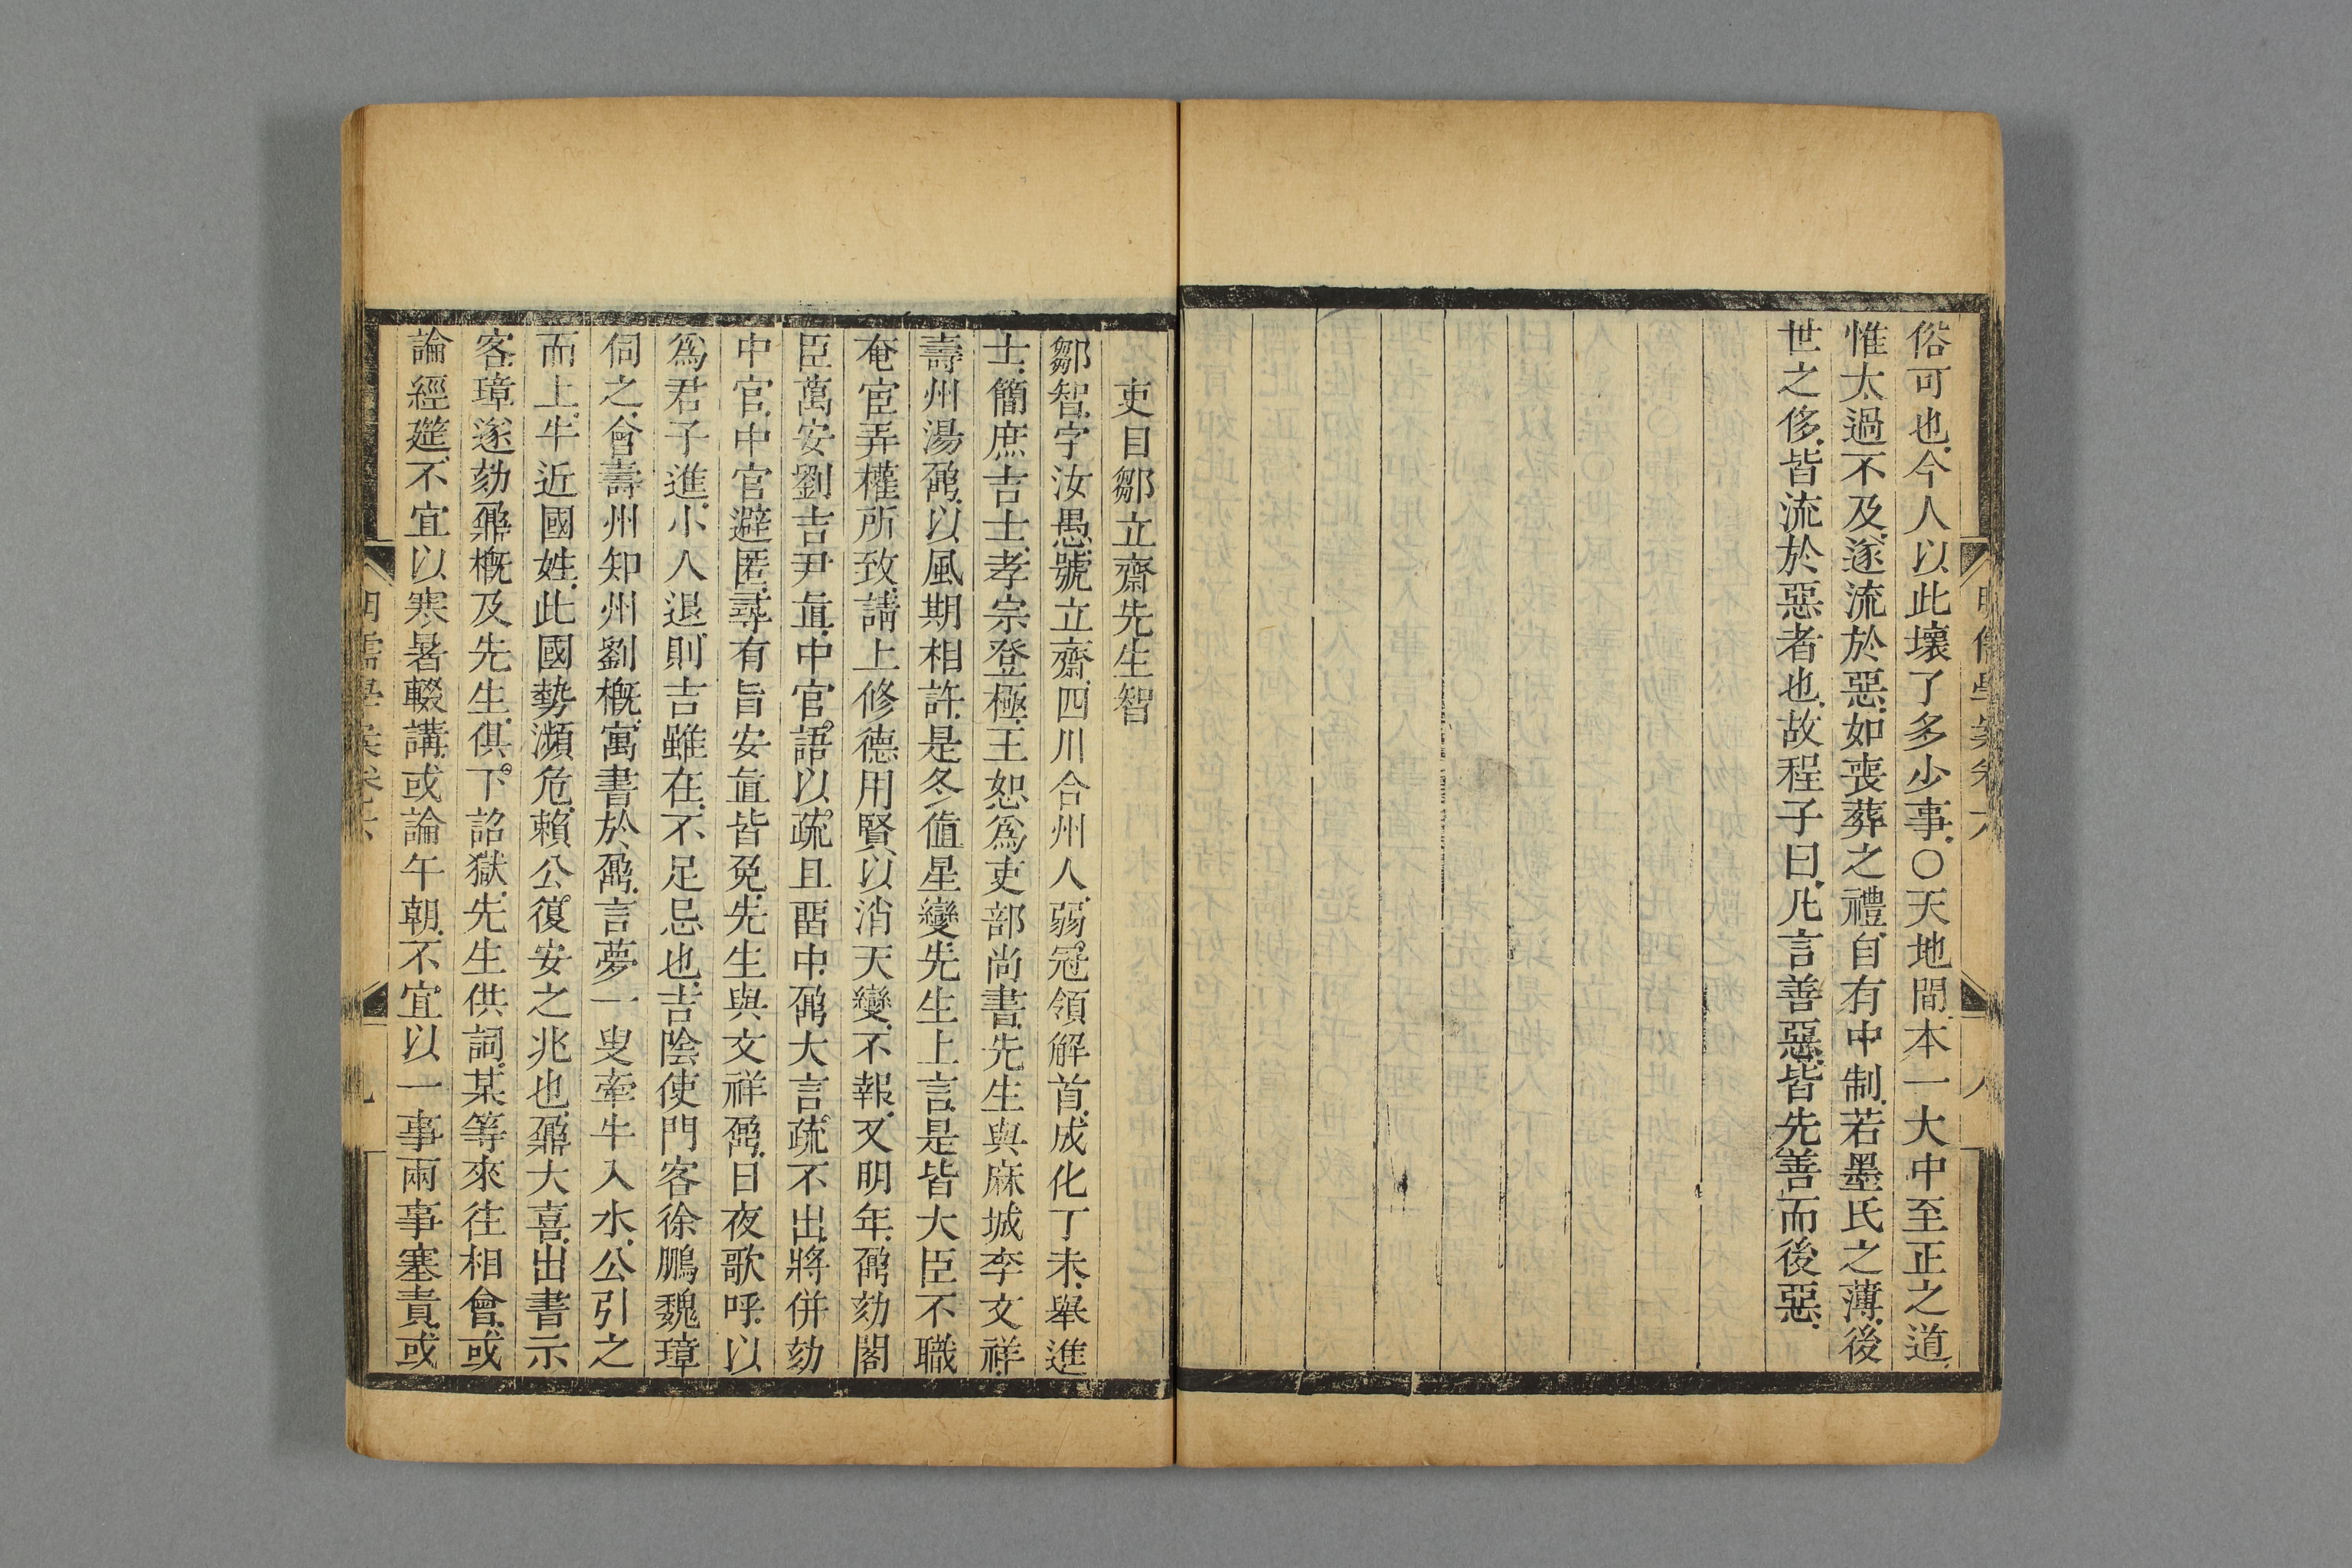 俗可也今人以此壞了多少事○天地間本一大中至正之道
惟太過不及遂流於惡如喪葬之禮自有中制若墨氏之薄後
世之侈皆流於惡者也故程子曰凡言善惡皆先善而後惡
吏目鄒立齋先生智
鄒智字汝愚號立齋四川合州人弱冠領解首成化丁未舉進
士簡庶吉士孝宗登極王恕爲吏部尚書先生與麻城李文祥
壽州湯鼐以風期相許是冬值星變先生上言是皆大臣不職
奄宦弄權所致請上修德用賢以消天變不報又明年鼐劾閣
臣萬安劉吉尹直中官語以疏且留中鼐大言疏不出將併劾
中官中官避匿尋有旨安直皆免先生與文祥鼐日夜歌呼以
爲君子進小人退則吉雖在不足忌也吉陰使門客徐鵬魏璋
伺之會壽州知州劉概寓書於鼐言夢一叟牽牛入水公引之
而上牛近國姓此國勢瀕危賴公復安之兆也鼐大喜出書示
客璋遂劾鼐概及先生俱下詔獄先生供詞某等來往相會或
論經筵不宜以寒暑輟講或論午朝不宜以一事兩事塞責或
明儒學案卷六